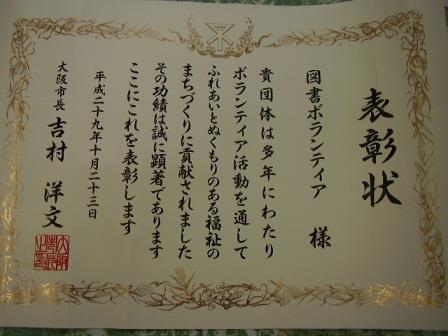 表彰状
図書ボランティア 様
貴団体は多年にわたり
ボランティア活動を通して
ふれあいとぬくもりのある福祉の
まちづくりに貢献されました
その功績は誠に顕著であります
ここにこれを表彰します
平成二十九年十月二十三日
大阪市長 吉村 洋文